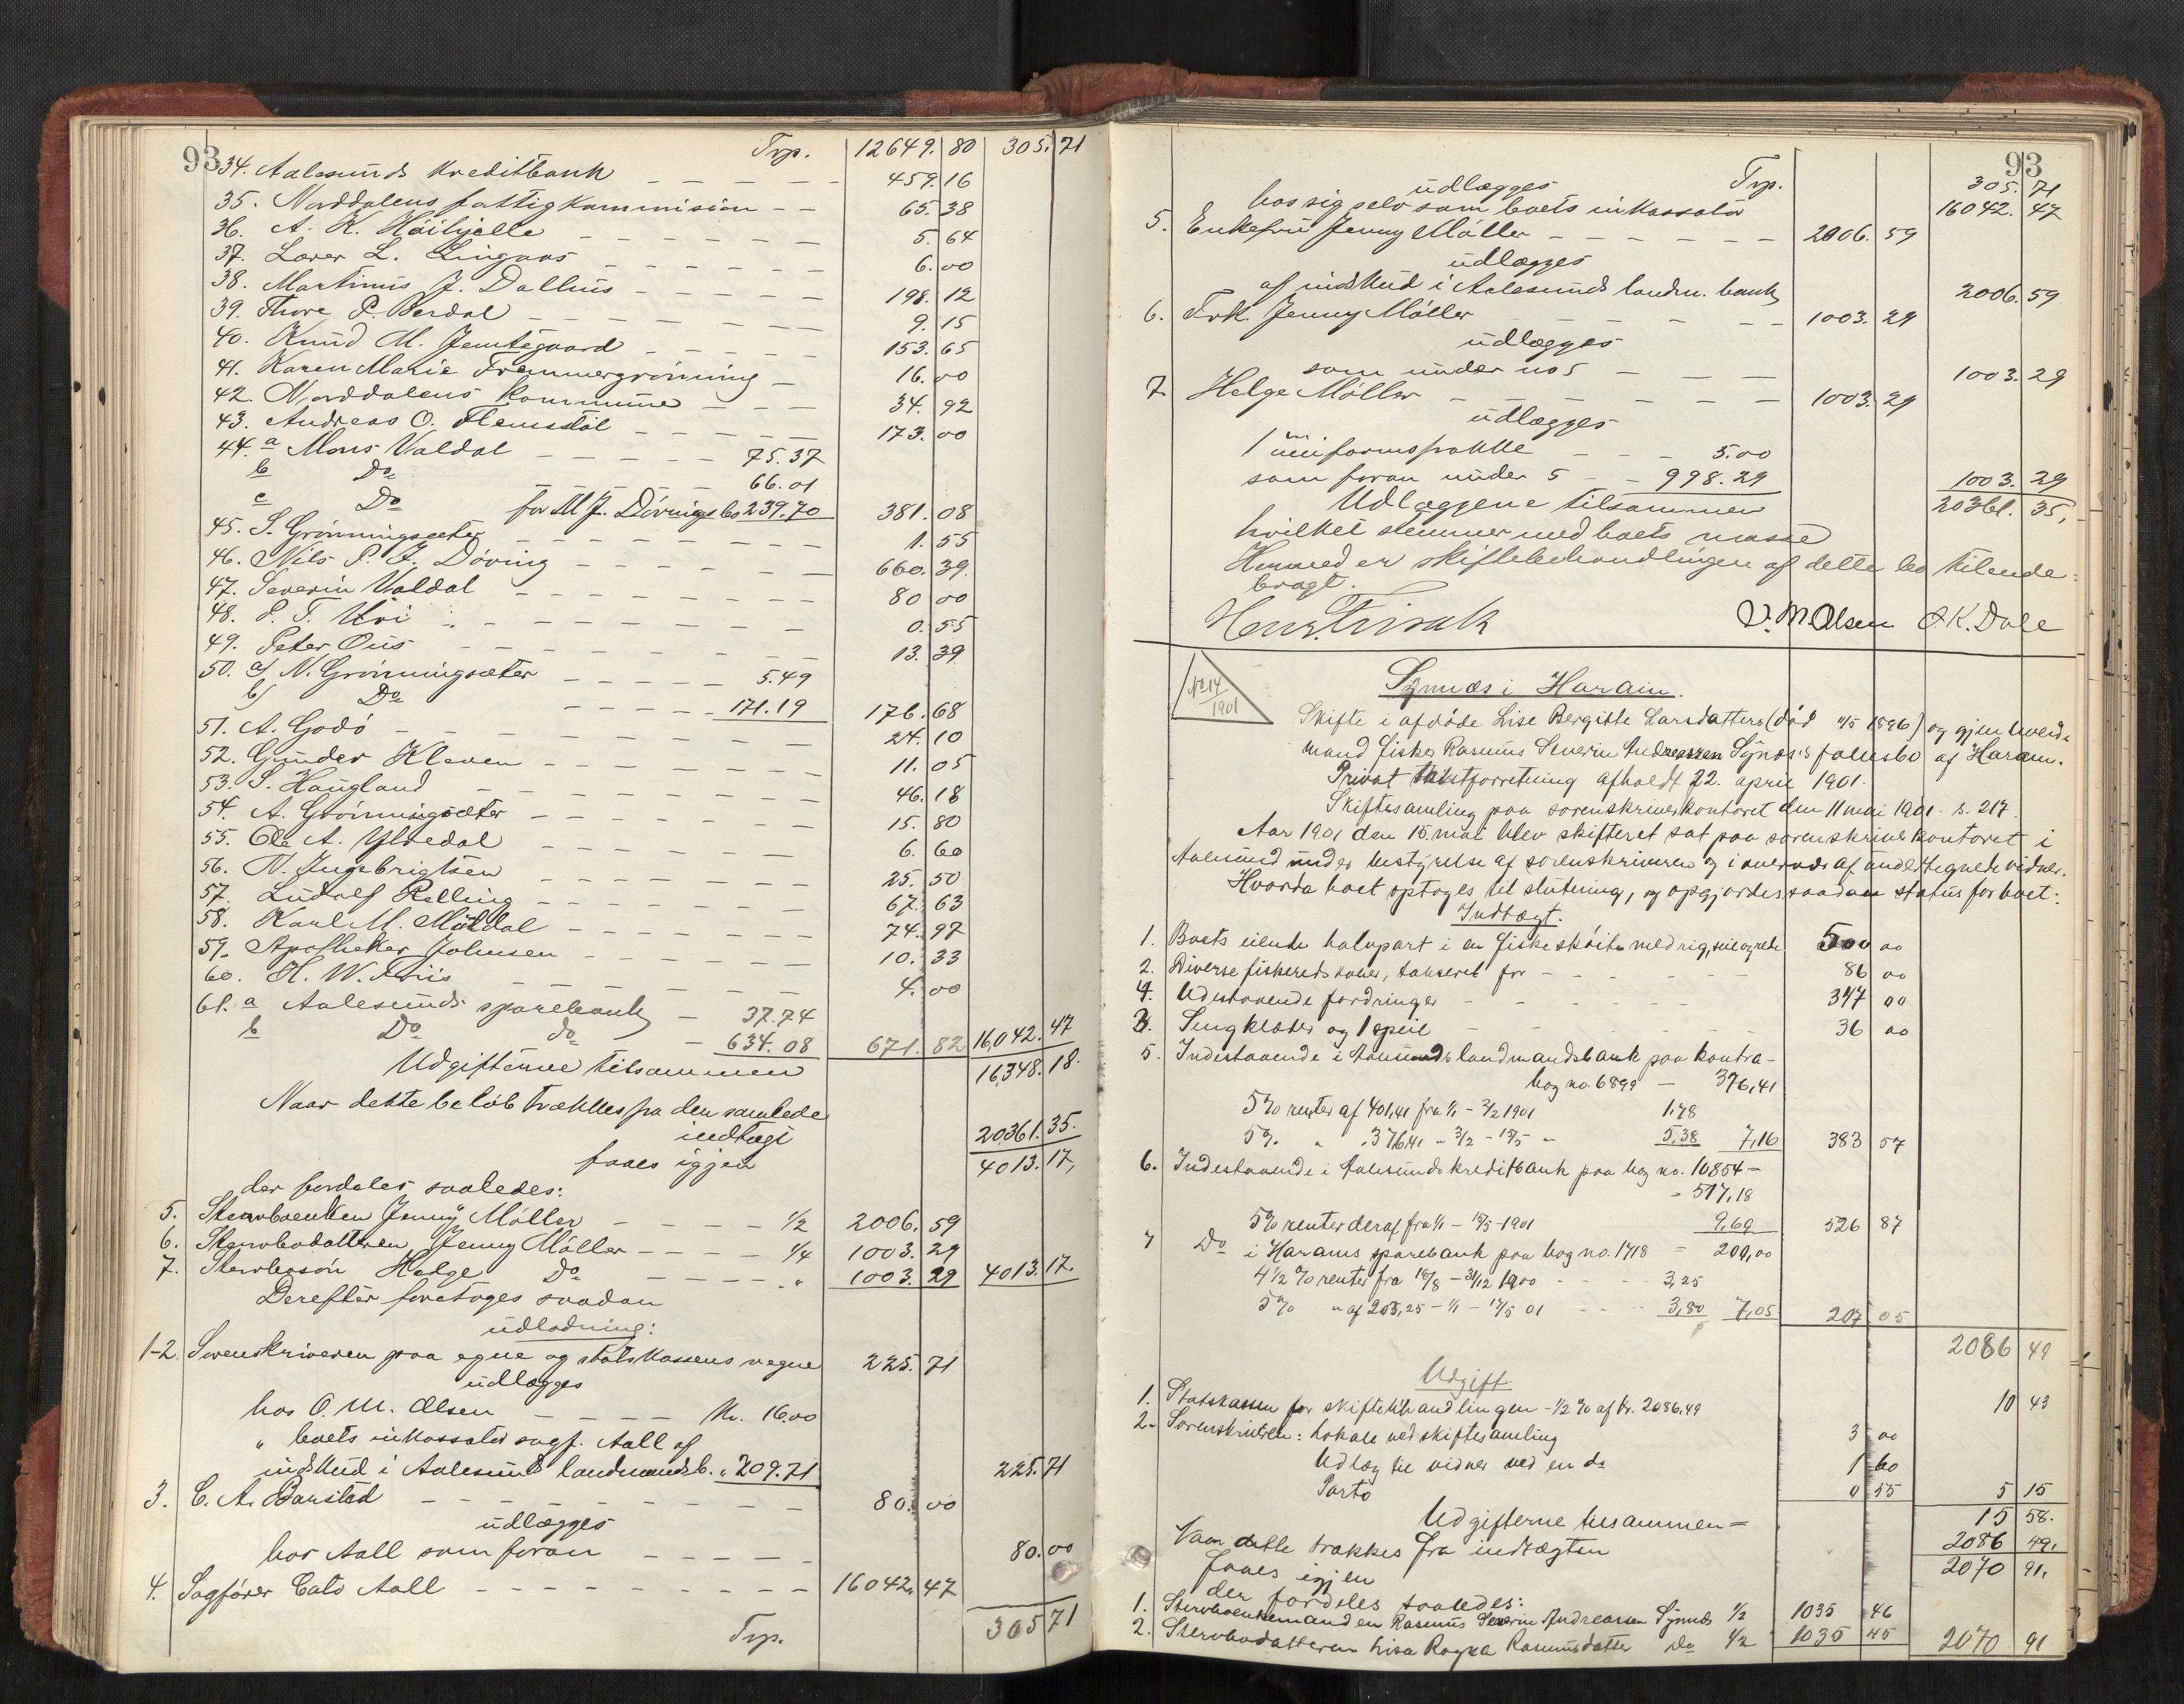 93
Trp. 12649. 80 305. 71
34. Aalesunds kreditbank 459. 16
35. Norddalens fattigkommission 65. 38
36. A. K. Höihjelle 5. 64
37. Laver L. Lingaas 6. 00
38. Martinus J. Dalhus 198. 12
39. Thore P. Berdal 9. 15
40. Knud M. Jemtegaard 153. 65
41. Karen Marie Fremmergrönning 16. 00
42. Norddalens kommune 34. 92
43. Andreas O. Flemsstöl 173. 00
44. a Mons Valdal 75. 37
b Do 66. 01
c Do for M J. Dövings bo 239. 70 381. 08
45. S. Grönningsæter 1. 55
46. Nils P. J. Döving 660. 39
47. Severin Valdal 80 00
48. P. T. Uri 0. 55
49. Peter Ous 13. 39
50. a) N. Grönningsæter 5. 49
b) Do 171. 19 176. 68
51. A. Godö 24. 10
52. Gunder Kleven 11. 05
53. S. Haugland 46. 18
54. A. Grönningsæter 15. 80
55. Ole A. Ytredal 6. 60
56. N. Ingebrigtsen 25. 50
57. Ludolf Relling 67. 63
58. Karl M. Muldal 74. 97
59. Apotheker Johnsen 10. 33
60. H. W. Friis 4. 00
61. a Aalesunds sparebank 37. 74
b Do do 634. 08 671. 82 16,042. 47
Udgifterne tilsammen 16,348. 18.
Naar dette belöb trækkes fra den samlede
indtægt 20361. 35.
faaes igjen 4013. 17,
der fordeles saaledes:
5. Stervboenken Jenny Möller 1/2 2006. 59
6. Stervbodatteren Jenny Möller 1/4 1003. 29
7. Stervbosön Helge Do " 1003. 29 4013. 17.
Derefter foretoges saadan
udlodning:
1-2. Sorenskriveren paa egne og statskassens vegne 225. 71
udlægges
hos O. M. Olsen Kr. 16.00
" boets inkassator sagf. Aall af
indskud i Aalesunds landmandsb. " 209. 71 225. 71
3. C. A. Barstad 80. 00
udlægges
hos Aall som foran 80. 00
4. Sagförer Cato Aall 16042. 47
Trp. 305 71
93
Trp. 305. 71
udlægges
hos sig selv som boets inkassator 16042. 47
5. Enkefru Jenny Möller 2006. 59
udlægges
af indskud i Aalesunds landm. bank 2006. 59
6. Frk. Jenny Möller 1003. 29
udlægges
som under no 5 1003. 29
7. Helge Möller 1003. 29
udlægges
1 uniformsfrakke 5.00
som foran under 5 998. 29 1003. 29
Udlæggene tilsammen 20361. 35,
hvilket stemmer med boets masse
Hermed er skiftebehandlingen af dette bo tilende-
bragt.
O. M. Olsen O. K. Dale
No 14
1901
Synnæs i Haram.
Skifte i afdöde Lise Bergitte Larsdatters (död 11/5 1896) og gjenlevende
mand fisker Rasmus Severin Andreassen Synæs's fællesbo af Haram.
Privat takstforretning afholdt 22. april 1901.
Skiftesamling paa sorenskriverkontoret den 11 mai 1901. s. 217.
Aar 1901 den 15. mai blev skifteret sat paa sorenskriverkontoret i
Aalesund under bestyrelse af sorenskriveren og i overvær af undertegnede vidner.
Hvorda boet optoges til slutning, og opgjordes saadan status for boet:
Indtægt.
1. Boets eiende halvpart i en fiskesköite med rig, seil og rede 500 00
2. Diverse fiskeredskaber, takseret for 86 00
4. Udestaaende fordringer 347 00
3. Sengklæder og 1 speil 36 00
5. Indestaaende i Aalesunds landmandsbank paa kontra-
bog no. 6899 – 376,41
5% renter af 401,41 fra 1/1 – 3/2 1901 1,78
5% " " 376,41 " 3/2 – 15/5 " 5,38 7,16 383 57
6. Indestaaende i Aalesunds kreditbank paa bog no. 10854 –
= 517,18
5% renter deraf fra 1/1 – 15/5 1901 9,69 526 87
7 Do i Harams sparebank paa bog no. 1718 = 200,00
4 1/2 % renter fra 18/8 – 31/12 1900 3,25
5% " af 203,25 – 1/1 – 15/5 01 3,80 7,05 207 05
2086 49
Udgift.
1. Statskassen for skiftebehandlingen – 1/2 % af kr. 2086,49 10 43
2. Sorenskriveren: Lokale ved skiftesamling 3 00
Udlæg til vidner ved en do 1 60
Porto 0 55 5 15
Udgifterne tilsammen = 15 58.
Naar dette trækkes fra indtægten 2086 49.
faaes igjen 2070 91.
der fordeles saaledes:
1. Stervboenkemanden Rasmus Severin Andreassen Synnæs 1/2 1035 46
2. Stervbodatteren Lisa Ragna Rasmusdatter Do 1/2 1035 45 2070 91